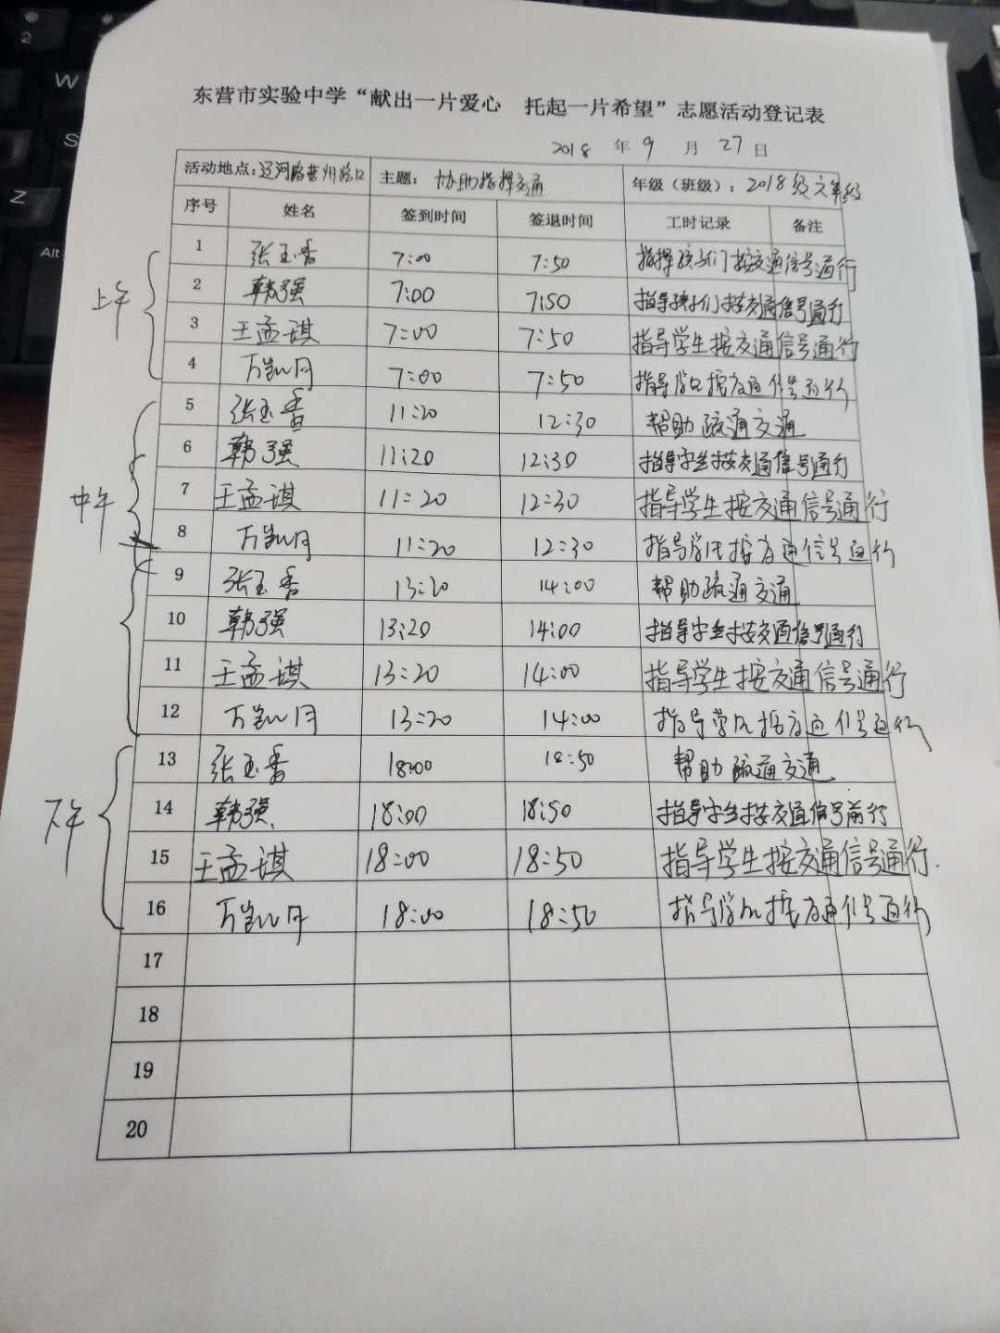 东营市实验中学“献出一片爱心 托起一片希望”志愿活动登记表
2018 年 9 月 27 日
活动地点：辽河路营州路口 主题：协助指挥交通 年级（班级）：2018级六年级
序号 姓名 签到时间 签退时间 工时记录 备注
上午
1 张玉香 7:00 7:50 指挥孩子们按交通信号通行
2 韩强 7:00 7:50 指导孩子们按交通信号通行
3 王孟琪 7:00 7:50 指导学生按交通信号通行
4 万凯月 7:00 7:50 指导 按交通信号通行
5 张玉香 11:20 12:30 帮助疏通交通
6 韩强 11:20 12:30 指导学生按交通信号通行
中午
7 王孟琪 11:20 12:30 指导学生按交通信号通行
8 万凯月 11:20 12:30 指导 按交通信号通行
9 张玉香 13:20 14:00 帮助疏通交通
10 韩强 13:20 14:00 指导学生按交通信号通行
11 王孟琪 13:20 14:00 指导学生按交通信号通行
12 万凯月 13:20 14:00 指导 按交通信号通行
13 张玉香 18:00 18:50 帮助疏通交通
下午
14 韩强 18:00 18:50 指导学生按交通信号前行
15 王孟琪 18:00 18:50 指导学生按交通信号通行.
16 万凯月 18:00 18:50 指导 按交通信号通行
17
18
19
20